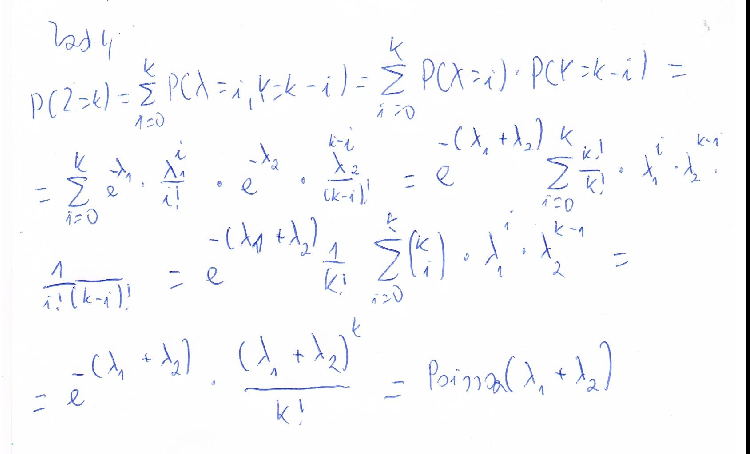 Zad 4
P(Z=k) = \sum_{i=0}^{k} P(X=i, Y=k-i) = \sum_{i=0}^{k} P(X=i) \cdot P(Y=k-i) =
= \sum_{i=0}^{k} e^{-λ_1} \cdot \frac{λ_1^i}{i!} \cdot e^{-λ_2} \cdot \frac{λ_2^{k-i}}{(k-i)!} = e^{-(λ_1+λ_2)} \sum_{i=0}^{k} \frac{k!}{k!} \cdot λ_1^i \cdot λ_2^{k-i} \cdot
\frac{1}{i!(k-i)!} = e^{-(λ_1+λ_2)} \frac{1}{k!} \sum_{i=0}^{k} \binom{k}{i} \cdot λ_1^i \cdot λ_2^{k-i} =
= e^{-(λ_1+λ_2)} \cdot \frac{(λ_1+λ_2)^k}{k!} = Poisson(λ_1+λ_2)